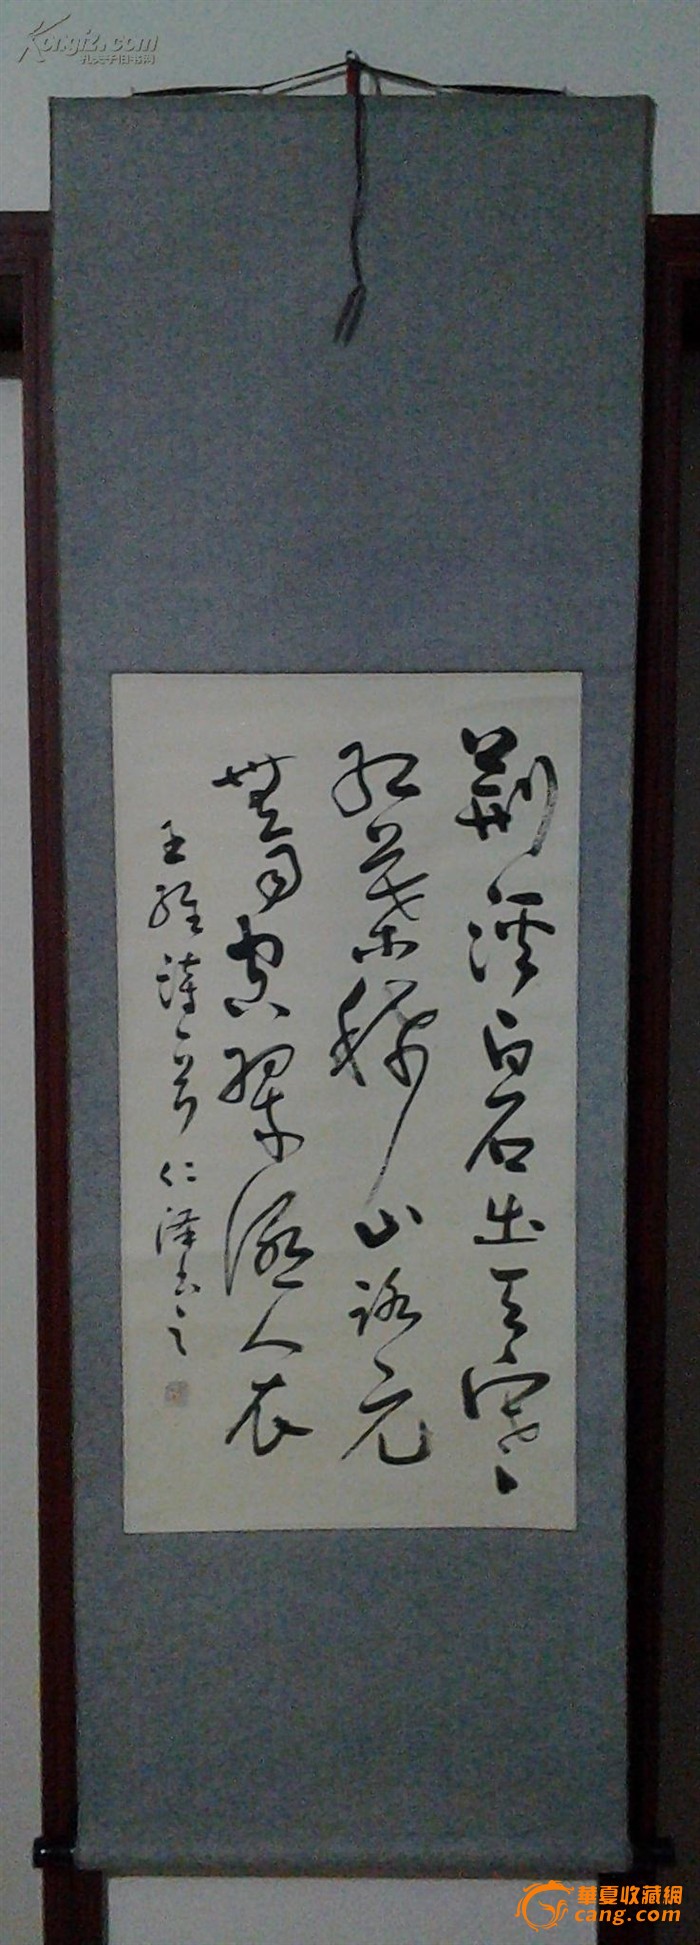 Kongfz.com
孔夫子旧书网
荆溪白石出天寒
红葉稀山路元
無雨空翠濕人衣
王維詩一首 仁泽书之
華夏收藏網
cang.com